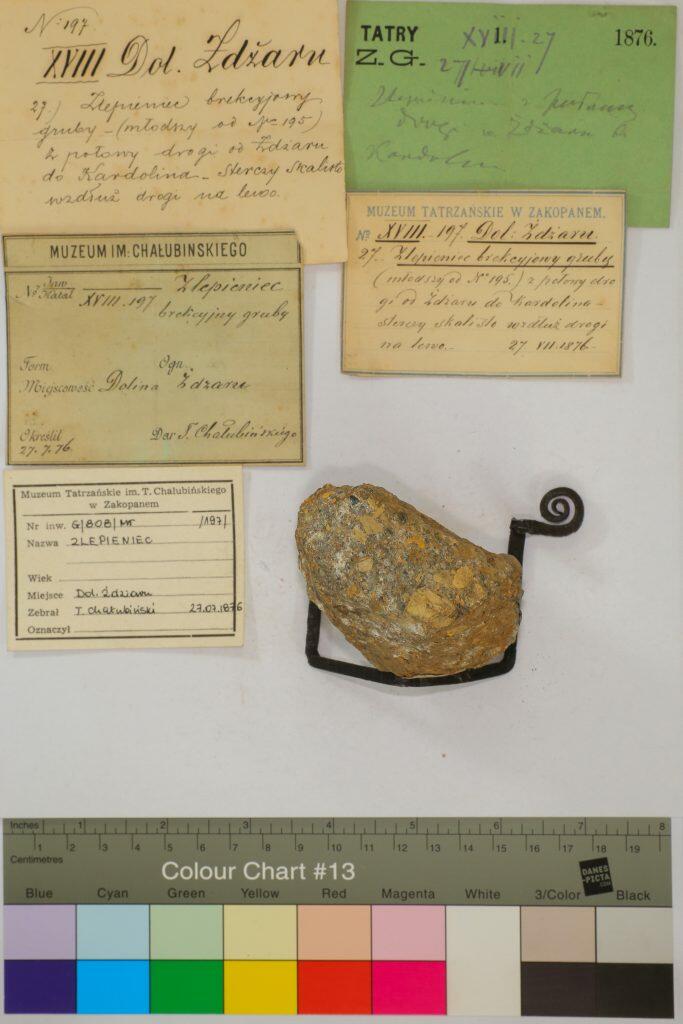 N: 197
XVIII Dol. Zdźaru
27.) Zlepieniec brekcyjowy
gruby - (młodszy od No 195)
z połowy drogi od Zdźaru
do Kardolina - Sterczy Skalisto
wzdłuż drogi na lewo.
TATRY
Z. G.
XVIII. 27
1876.
27 VII
Zlepieniec z
drogi w Zdźaru
MUZEUM TATRZAŃSKIE W ZAKOPANEM.
No XVIII. 197. Dol: Zdżaru.
27. Zlepieniec brekcyjowy gruby
(młodszy od No 195.) z połowy dro
gi od Zdżaru do Kardolina -
sterczy skalisto wzdłuż drogi
na lewo. - 27. VII. 1876.
MUZEUM IM: CHAŁUBIŃSKIEGO
No Inw. Katal XVIII.197 Zlepieniec
brekcyjny gruby
Form. Ogn.
Miejscowość Dolina Zdżaru
Określił Dar T. Chałubińskiego
27.7.76.
Muzeum Tatrzańskie im. T. Chałubińskiego
w Zakopanem
Nr inw. G/808/MT /197/
Nazwa ZLEPIENIEC
Wiek
Miejsce Dol. Ździaru
Zebrał T. Chałubiński 27.07.1876
Oznaczył
Inches 1 2 3 4 5 6 7 8
Centimetres 1 2 3 4 5 6 7 8 9 10 11 12 13 14 15 16 17 18 19
Colour Chart #13
DANES-PICTA.COM
Blue Cyan Green Yellow Red Magenta White 3/Color Black